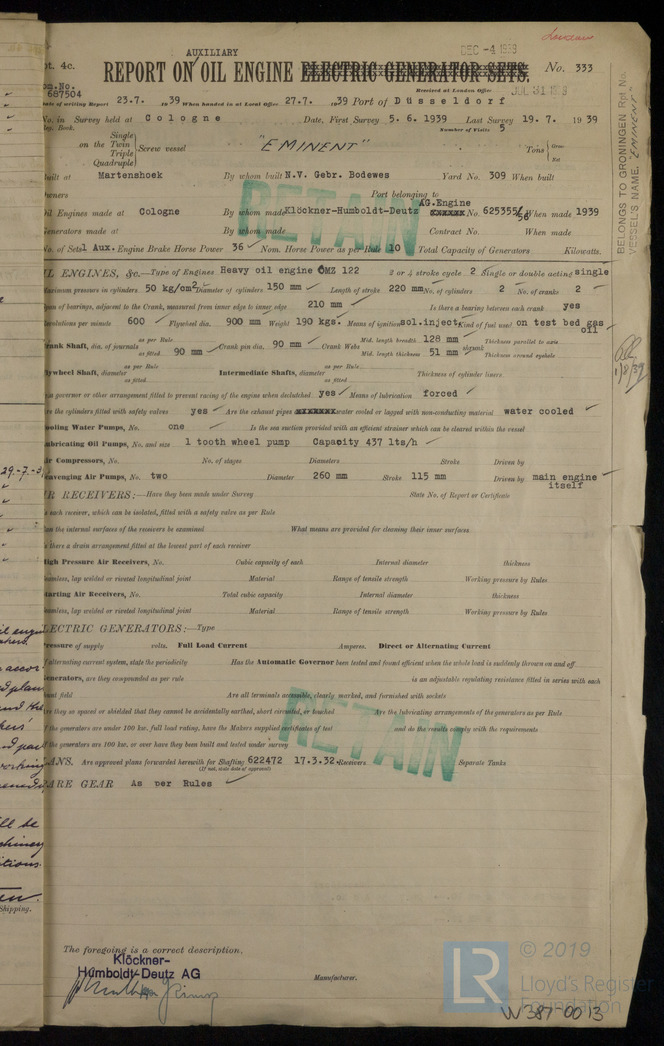 AUXILIARY
DEC -4 1939
pt. 4c.
REPORT ON OIL ENGINE ELECTRIC GENERATOR SETS.
No. 333
om. No. 687504
Received at London Office JUL 31 1939
Date of writing Report 23.7. 1939 When handed in at Local Office 27.7. 1939 Port of Düsseldorf
No. in Survey held at Cologne Date, First Survey 5. 6. 1939 Last Survey 19. 7. 1939
Reg. Book. Number of Visits 5
on the Single Twin Triple Quadruple Screw vessel "EMINENT" Tons Gross Net
uilt at Martenshoek By whom built N.V. Gebr. Bodewes Yard No. 309 When built
wners Port belonging to
il Engines made at Cologne By whom made Klöckner-Humboldt-Deutz AG. Engine No. 625355/56 When made 1939
enerators made at By whom made Contract No. When made
No. of Sets 1 Aux. Engine Brake Horse Power 36 Nom. Horse Power as per Rule 10 Total Capacity of Generators Kilowatts.
IL ENGINES, &c.—Type of Engines Heavy oil engine OMZ 122 2 or 4 stroke cycle 2 Single or double acting single
Maximum pressure in cylinders 50 kg/cm2 Diameter of cylinders 150 mm Length of stroke 220 mm No. of cylinders 2 No. of cranks 2
Span of bearings, adjacent to the Crank, measured from inner edge to inner edge 210 mm Is there a bearing between each crank yes
Revolutions per minute 600 Flywheel dia. 900 mm Weight 190 kgs. Means of ignition sol.inject. Kind of fuel used on test bed gas oil
Crank Shaft, dia. of journals as per Rule as fitted 90 mm Crank pin dia. 90 mm Crank Webs Mid. length breadth 128 mm Mid. length thickness 51 mm shrunk Thickness parallel to axis Thickness around eyehole
lywheel Shaft, diameter as per Rule as fitted Intermediate Shafts, diameter as per Rule as fitted Thickness of cylinder liners
a governor or other arrangement fitted to prevent racing of the engine when declutched yes Means of lubrication forced
re the cylinders fitted with safety valves yes Are the exhaust pipes water cooled or lagged with non-conducting material water cooled
ooling Water Pumps, No. one Is the sea suction provided with an efficient strainer which can be cleared within the vessel
ubricating Oil Pumps, No. and size 1 tooth wheel pump Capacity 437 lts/h
ir Compressors, No. No. of stages Diameters Stroke Driven by
cavenging Air Pumps, No. two Diameter 260 mm Stroke 115 mm Driven by main engine itself
IR RECEIVERS:—Have they been made under Survey State No. of Report or Certificate
s each receiver, which can be isolated, fitted with a safety valve as per Rule
an the internal surfaces of the receivers be examined What means are provided for cleaning their inner surfaces
s there a drain arrangement fitted at the lowest part of each receiver
High Pressure Air Receivers, No. Cubic capacity of each Internal diameter thickness
eamless, lap welded or riveted longitudinal joint Material Range of tensile strength Working pressure by Rules
tarting Air Receivers, No. Total cubic capacity Internal diameter thickness
eamless, lap welded or riveted longitudinal joint Material Range of tensile strength Working pressure by Rules
LECTRIC GENERATORS:—Type
ressure of supply volts. Full Load Current Amperes. Direct or Alternating Current
f alternating current system, state the periodicity Has the Automatic Governor been tested and found efficient when the whole load is suddenly thrown on and off
enerators, are they compounded as per rule is an adjustable regulating resistance fitted in series with each
unt field Are all terminals accessible, clearly marked, and furnished with sockets
re they so spaced or shielded that they cannot be accidentally earthed, short circuited, or touched Are the lubricating arrangements of the generators as per Rule
f the generators are under 100 kw. full load rating, have the Makers supplied certificates of test and do the results comply with the requirements
f the generators are 100 kw. or over have they been built and tested under survey
LANS. Are approved plans forwarded herewith for Shafting 622472 17.3.32. Receivers Separate Tanks
(If not, state date of approval)
PARE GEAR As per Rules
RETAIN
RETAIN
BELONGS TO GRONINGEN Rpt No.
VESSEL'S NAME. "EMINENT"
1/8/39
29.-7.-3
Shipping.
The foregoing is a correct description.
Klöckner-
Humboldt-Deutz AG
Manufacturer.
LR
© 2019
Lloyd's Register
Foundation
W387-0013